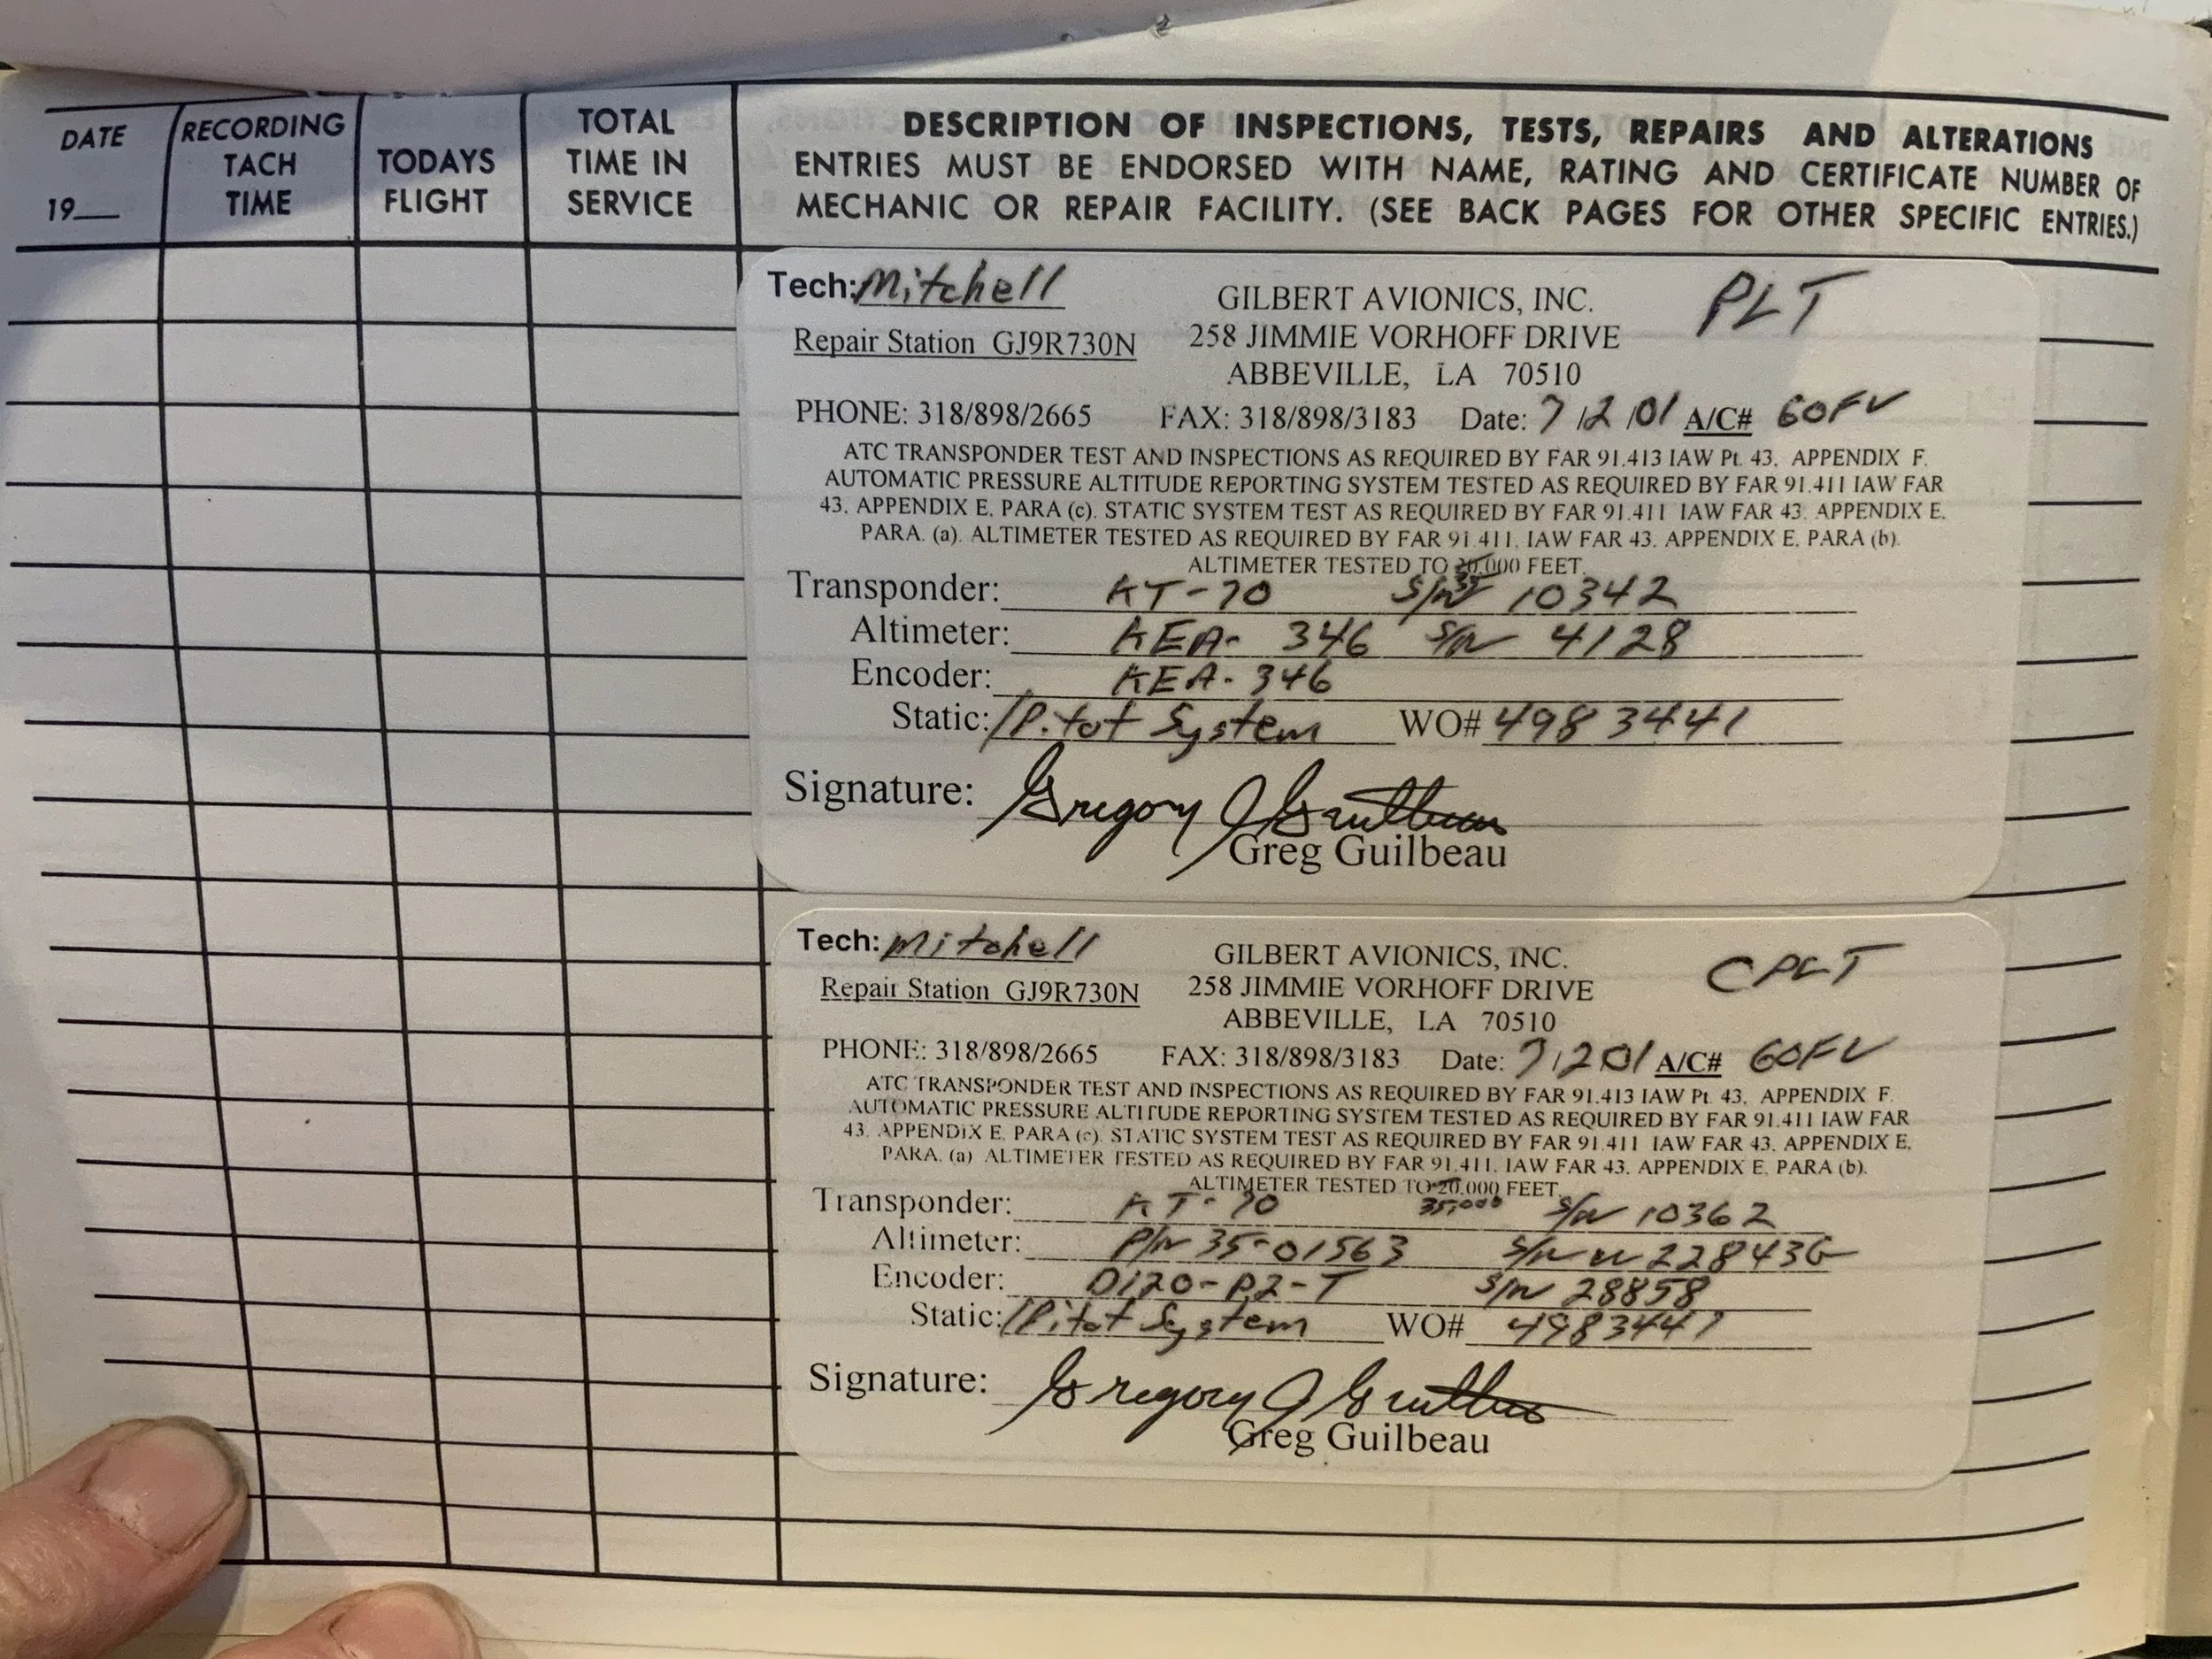 DATE
19
RECORDING
TACH
TIME
TODAYS
FLIGHT
TOTAL
TIME IN
SERVICE
DESCRIPTION OF INSPECTIONS, TESTS, REPAIRS AND ALTERATIONS
ENTRIES MUST BE ENDORSED WITH NAME, RATING AND CERTIFICATE NUMBER OF
MECHANIC OR REPAIR FACILITY. (SEE BACK PAGES FOR OTHER SPECIFIC ENTRIES.)
Tech: Mitchell
GILBERT AVIONICS, INC.
PLT
Repair Station GJ9R730N
258 JIMMIE VORHOFF DRIVE
ABBEVILLE, LA 70510
PHONE: 318/898/2665 FAX: 318/898/3183 Date: 7/2/01 A/C# 60FV
ATC TRANSPONDER TEST AND INSPECTIONS AS REQUIRED BY FAR 91.413 IAW Pt. 43, APPENDIX F.
AUTOMATIC PRESSURE ALTITUDE REPORTING SYSTEM TESTED AS REQUIRED BY FAR 91.411 IAW FAR
43, APPENDIX E, PARA (c). STATIC SYSTEM TEST AS REQUIRED BY FAR 91.411 IAW FAR 43, APPENDIX E,
PARA. (a). ALTIMETER TESTED AS REQUIRED BY FAR 91.411, IAW FAR 43, APPENDIX E, PARA (b).
ALTIMETER TESTED TO 20,000 FEET.
35
Transponder: KT-70 S/N 10342
Altimeter: KEA-346 S/N 4128
Encoder: KEA-346
Static: /Pitot System WO# 4983441
Signature: Gregory J Guilbeau
Greg Guilbeau
Tech: Mitchell
GILBERT AVIONICS, INC.
CPLT
Repair Station GJ9R730N
258 JIMMIE VORHOFF DRIVE
ABBEVILLE, LA 70510
PHONE: 318/898/2665 FAX: 318/898/3183 Date: 7/2/01 A/C# 60FV
ATC TRANSPONDER TEST AND INSPECTIONS AS REQUIRED BY FAR 91.413 IAW Pt. 43, APPENDIX F.
AUTOMATIC PRESSURE ALTITUDE REPORTING SYSTEM TESTED AS REQUIRED BY FAR 91.411 IAW FAR
43, APPENDIX E, PARA (c). STATIC SYSTEM TEST AS REQUIRED BY FAR 91.411 IAW FAR 43, APPENDIX E,
PARA. (a) ALTIMETER TESTED AS REQUIRED BY FAR 91.411, IAW FAR 43, APPENDIX E, PARA (b).
ALTIMETER TESTED TO 20,000 FEET.
35,000
Transponder: KT-70 S/N 10362
Altimeter: P/N 35-01563 S/N
Encoder: D120-P2-T S/N 28858
Static: /Pitot System WO# 4983441
Signature: Gregory J Guilbeau
Greg Guilbeau